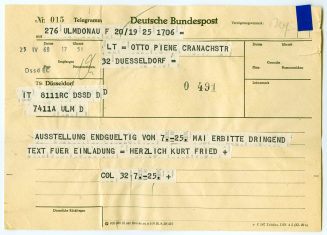 Nr. 015 Telegramm Deutsche Bundespost
276 ULMDONAU F 20/19 25 1706 =
LT = OTTO PIENE CRANACHSTR
32 DUESSELDORF =
TSt Düsseldorf
0 491
IT 8111RC DSSD D
7411A ULM D
AUSSTELLUNG ENDGUELTIG VOM 7.-25. MAI ERBITTE DRINGEND
TEXT FUER EINLADUNG = HERZLICH KURT FRIED +
COL 32 7.-25. +
Dienstliche Rückfragen